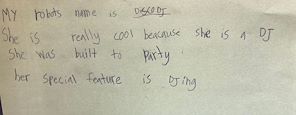 MY robots name is DISCO DJ
She is really cool beacause she is a DJ
She was built to Party
her special feature is DJing